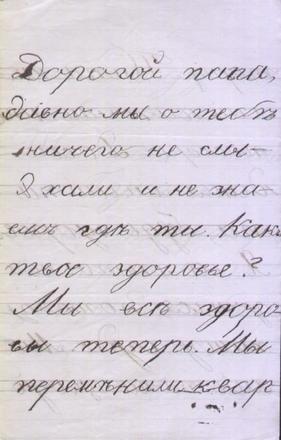 Дорогой папа,
давно мы о тебѣ
ничего не слы-
хали и не зна-
емъ гдѣ ты. Какъ
твое здоровье?
Мы всѣ здоро-
вы теперь. Мы
перемѣнили квар